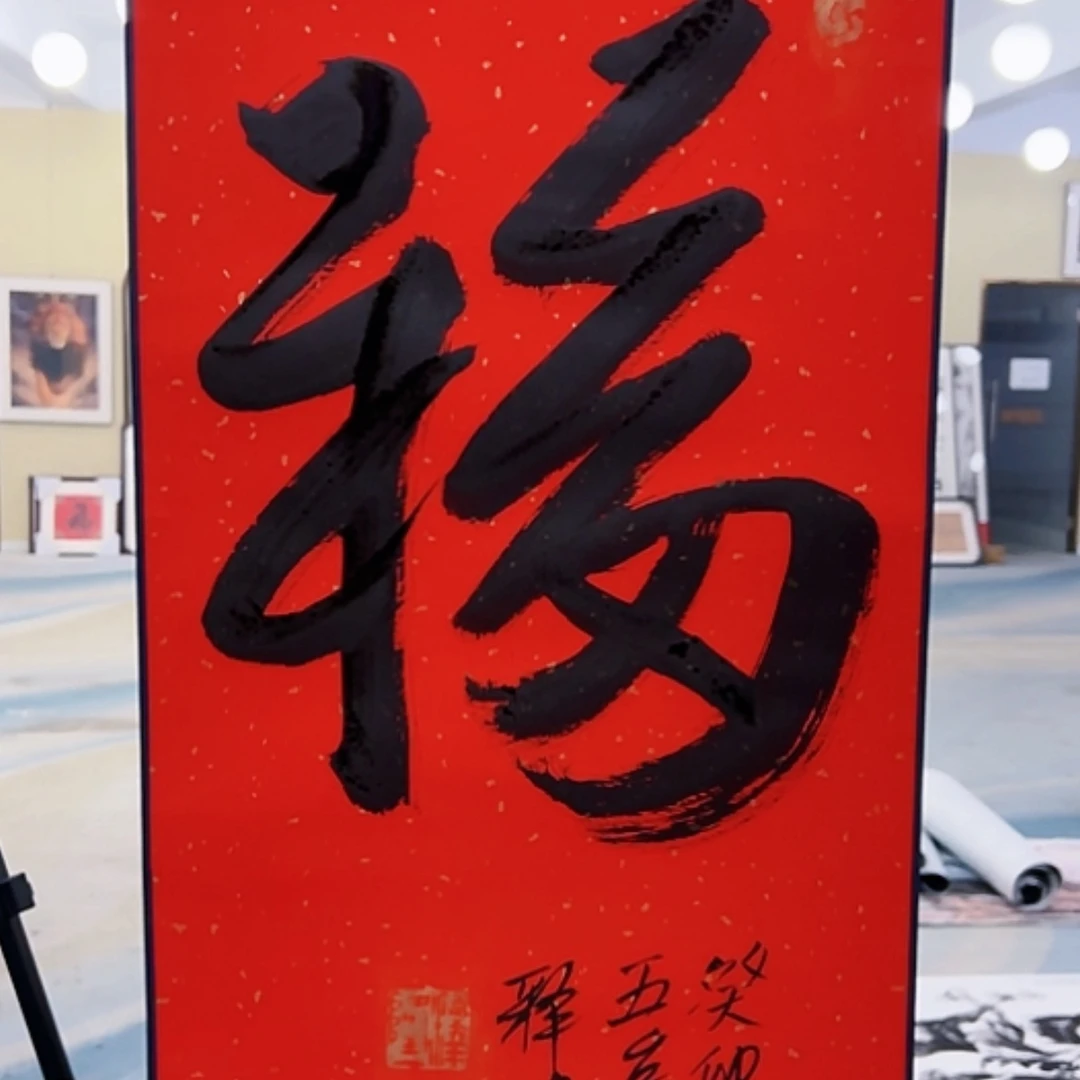 福
癸卯
五台
释